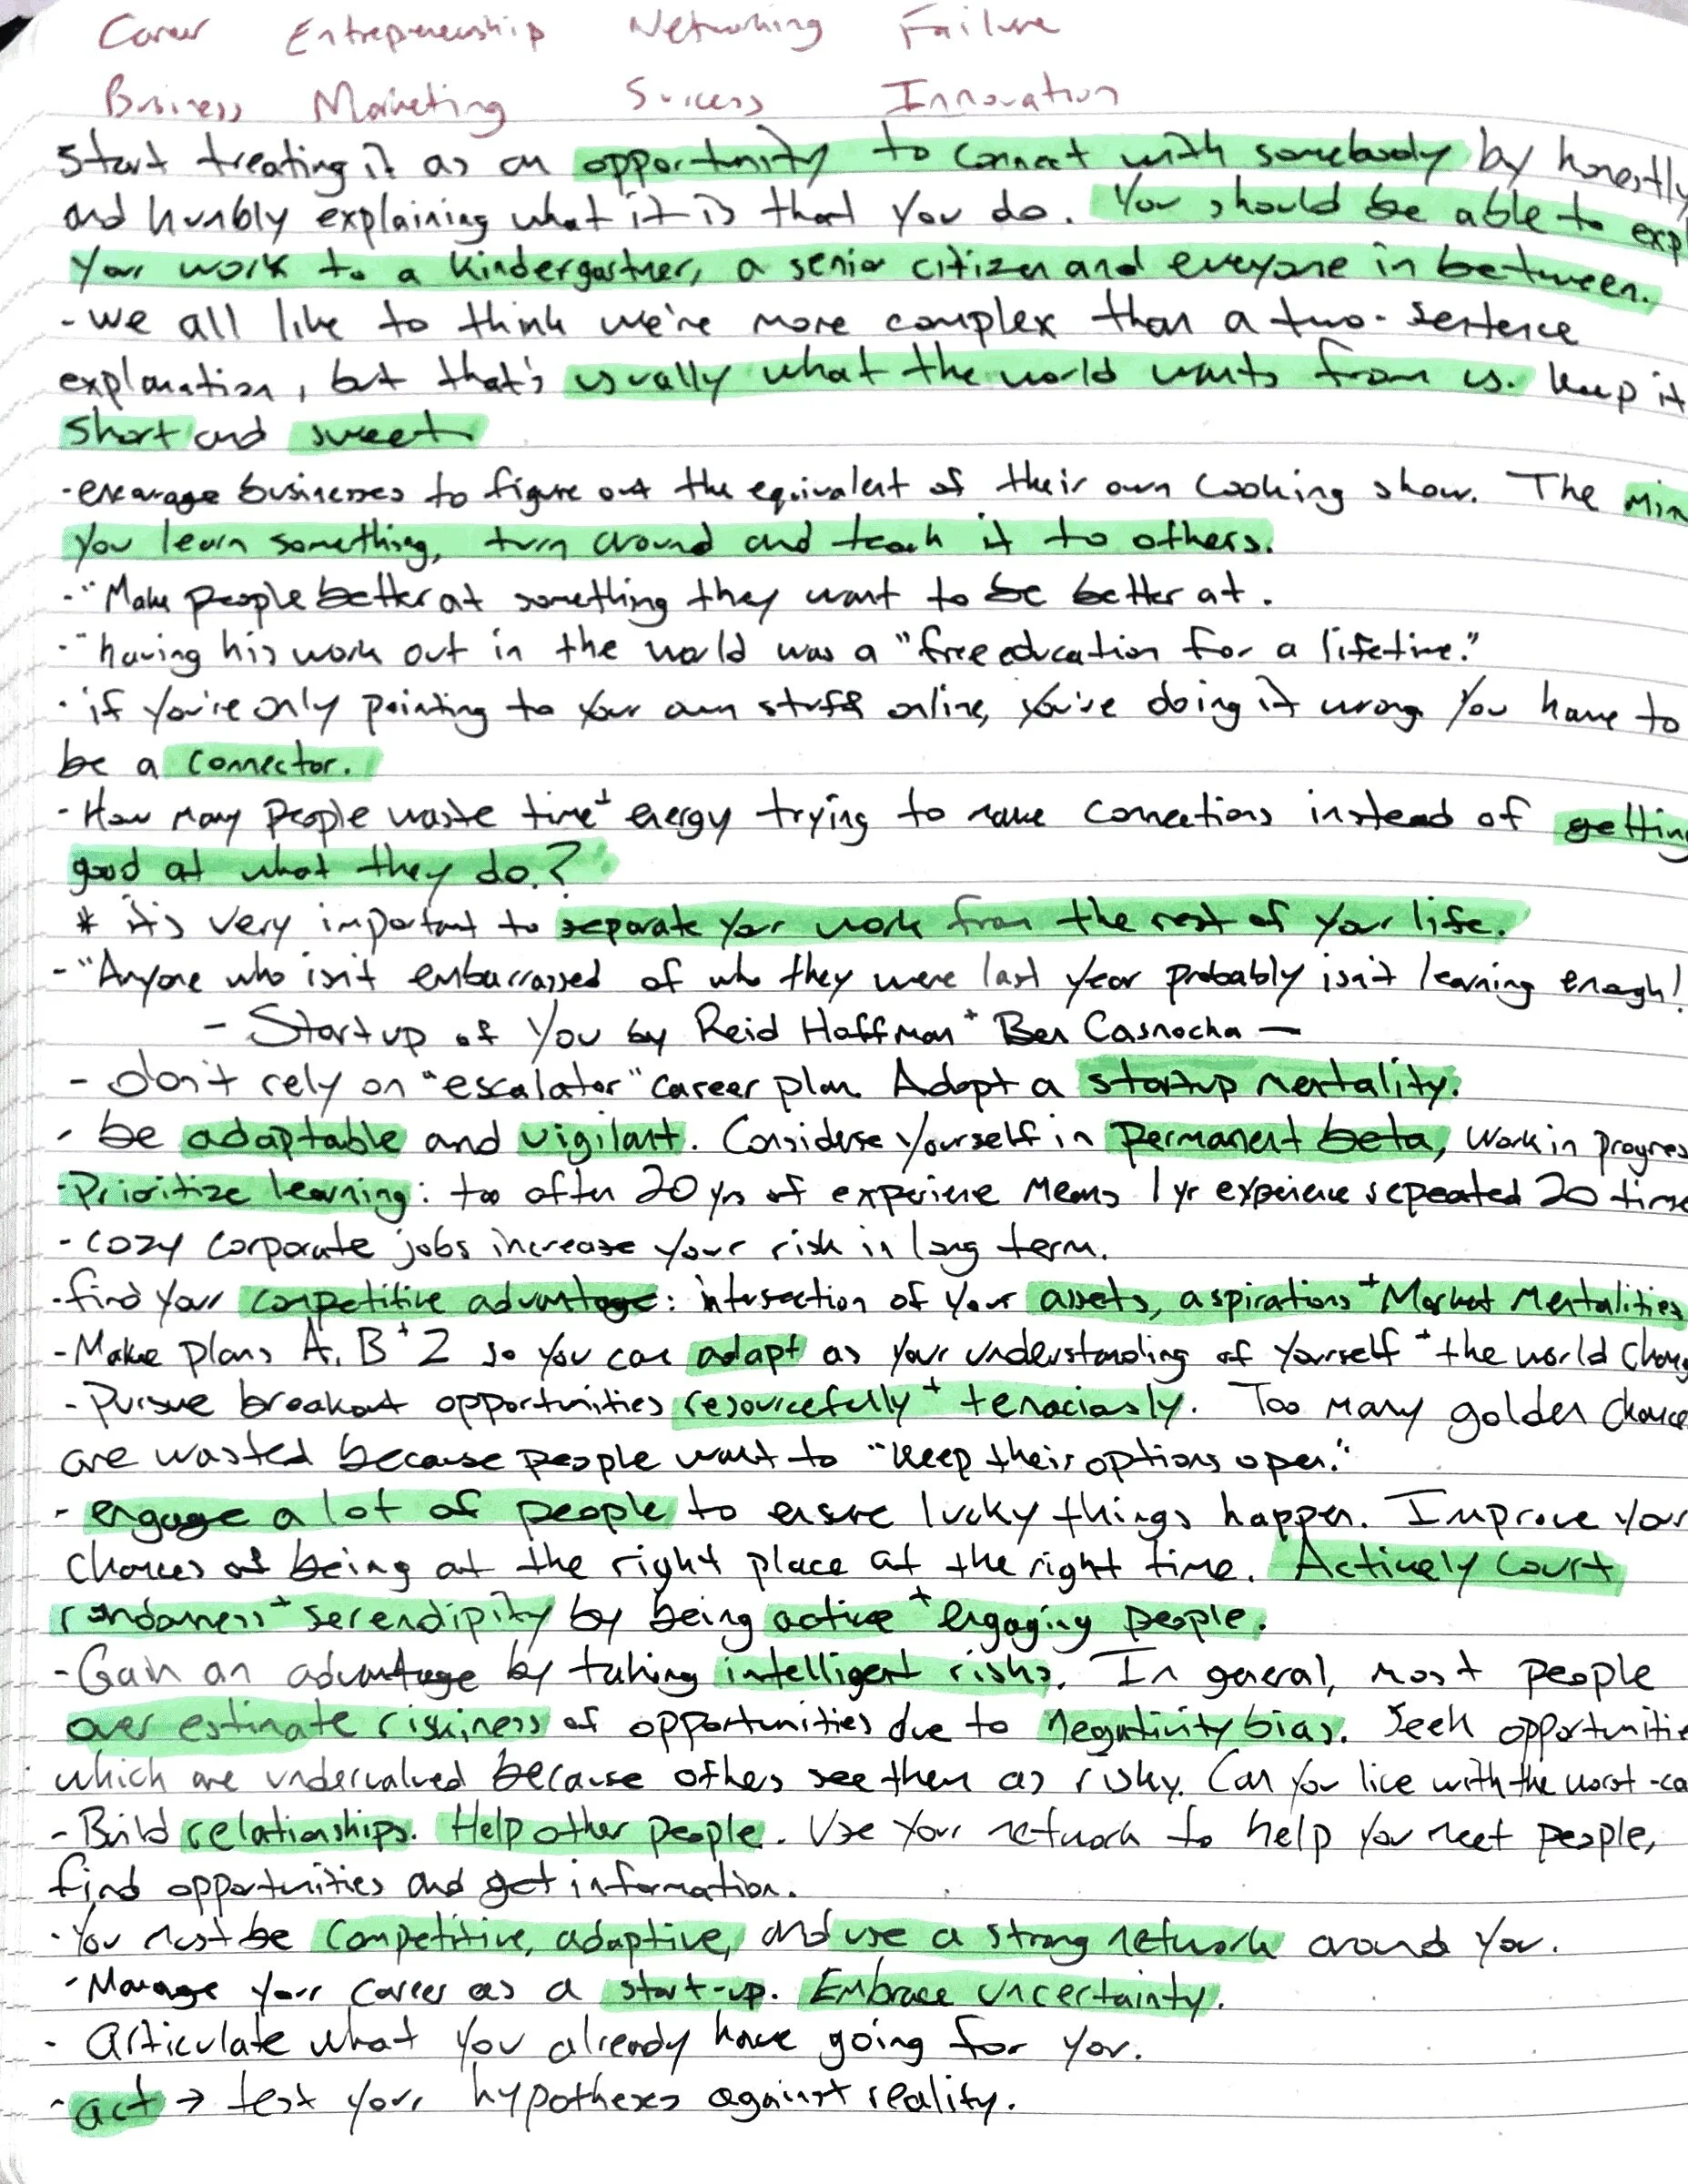 Career Entrepreneurship Networking Failure
Business Marketing Success Innovation
Start treating it as an opportunity to connect with somebody by honestly
and humbly explaining what it is that you do. You should be able to expl
your work to a kindergartner, a senior citizen and everyone in between.
- We all like to think we're more complex than a two-sentence
explanation, but that's usually what the world wants from us. Keep it
short and sweet
- encourage businesses to figure out the equivalent of their own cooking show. The min
you learn something, turn around and teach it to others.
- "Make people better at something they want to be better at.
- "having his work out in the world was a "free education for a lifetime."
- if you're only pointing to your own stuff online, you're doing it wrong. You have to
be a connector.
- How many people waste time + energy trying to make connections instead of getting
good at what they do?
* it's very important to separate your work from the rest of your life.
- "Anyone who isn't embarrassed of who they were last year probably isn't learning enough!
- Startup of You by Reid Hoffman + Ben Casnocha -
- don't rely on "escalator" career plan. Adopt a startup mentality.
- be adaptable and vigilant. Considerse yourself in permanent beta, work in progres
- Prioritize learning: too often 20 yrs of experience means 1 yr experience repeated 20 time
- cozy corporate jobs increase your risk in long term.
- find your competitive advantage: intersection of your assets, aspirations + Market Mentalities
- Make plans A, B + Z so you can adapt as your understanding of yourself + the world chang
- Pursue breakout opportunities resourcefully + tenaciously. Too many golden chance
are wasted because people want to "keep their options open."
- engage a lot of people to ensure lucky things happen. Improve your
chances of being at the right place at the right time. Actively court
randomness + serendipity by being active + engaging people.
- Gain an advantage by taking intelligent risks. In general, most people
over estimate riskiness of opportunities due to negativity bias. Seek opportunitie
which are undervalued because others see them as risky. Can you live with the worst-ca
- Build relationships. Help other people. Use your network to help you meet people,
find opportunities and get information.
- You must be competitive, adaptive, and use a strong network around you.
- Manage your career as a start-up. Embrace uncertainty.
- articulate what you already have going for you.
- act → test your hypotheses against reality.